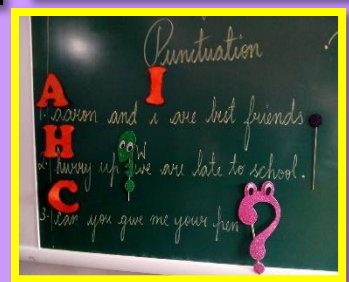 Punctuation
A I
1- aaron and i are best friends
H W
2- hurry up , we are late to school.
C
3- can you give me your pen ?